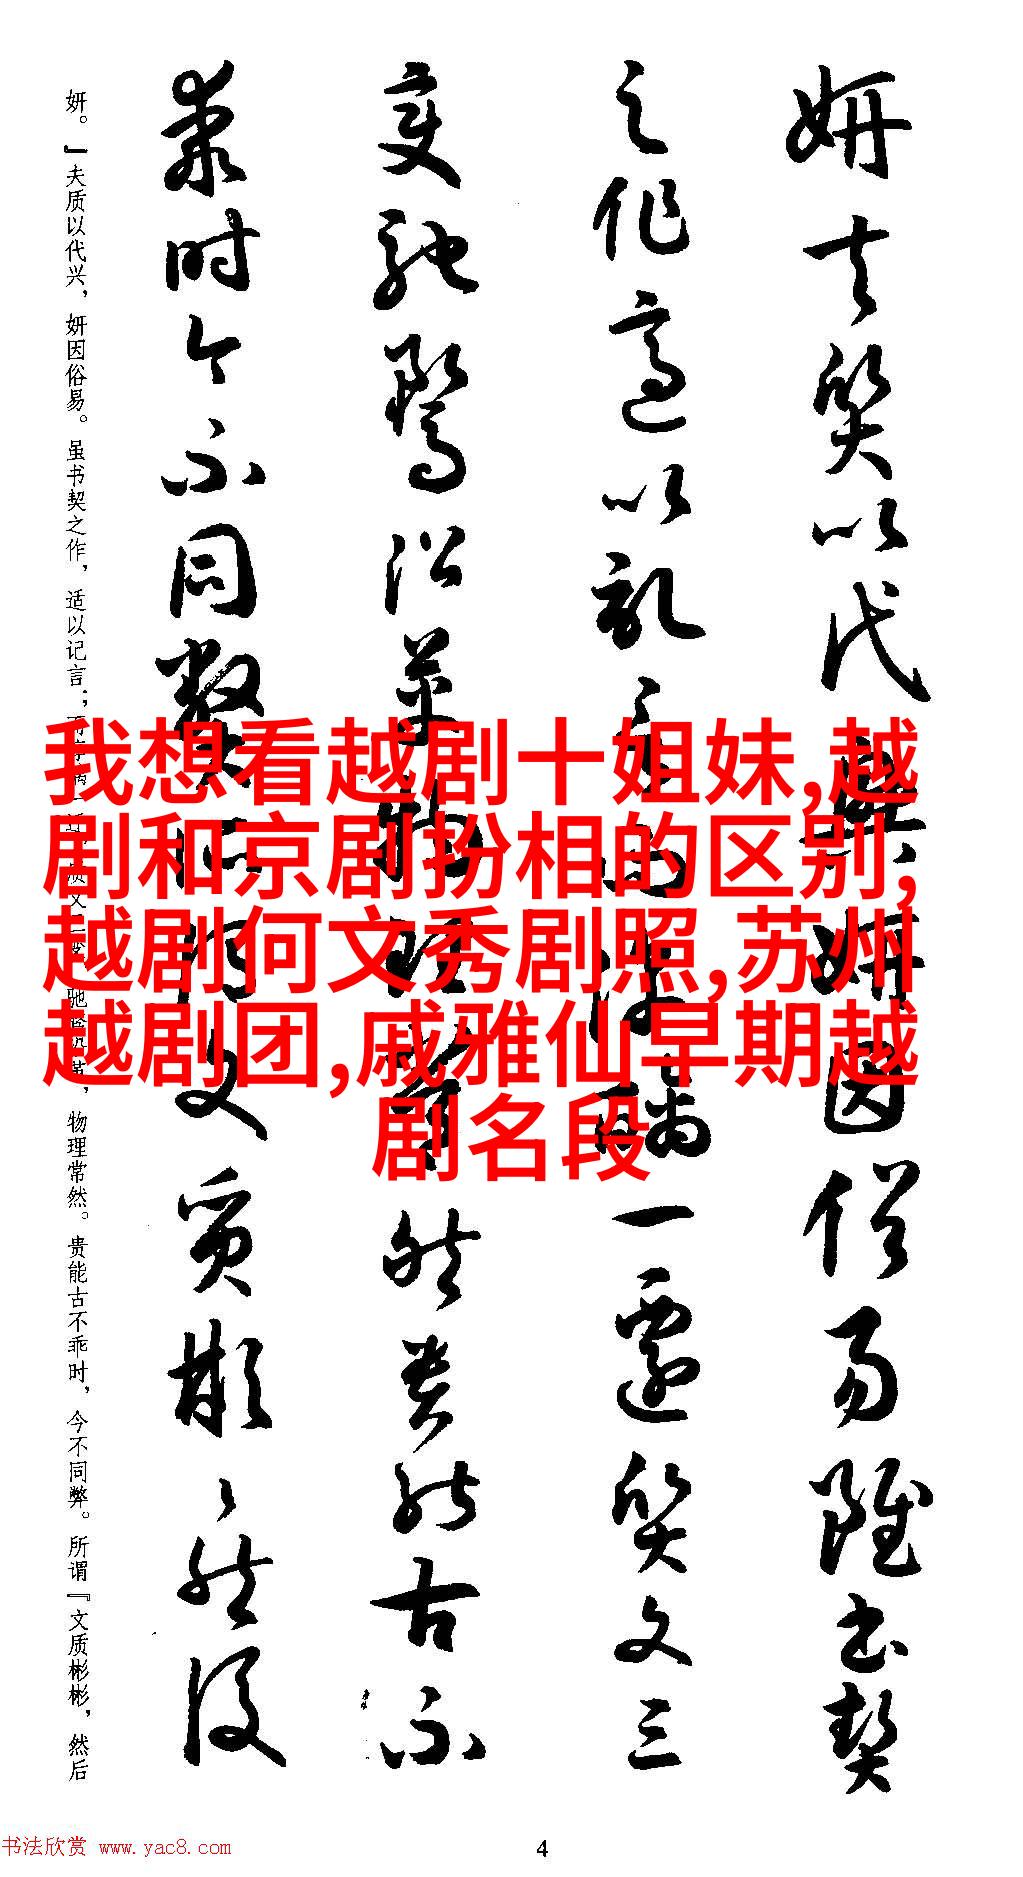 我想看越剧十姐妹,越
剧和京剧扮相的区别,
越剧何文秀剧照,苏州
越剧团,戚雅仙早期越
剧名段
妍夫質以代興妍因俗易雖書契
之作適以記言而淳醨一遷質文三
變馳騖沿革物理常然貴能古不
乖時今不同弊所謂文質彬々然後
妍。』夫质以代兴，妍因俗易。虽书契之作，适以记言；物理常然。贵能古不乖时，今不同弊。所谓『文质彬彬，然后
书法欣赏 www.yac8.com
4